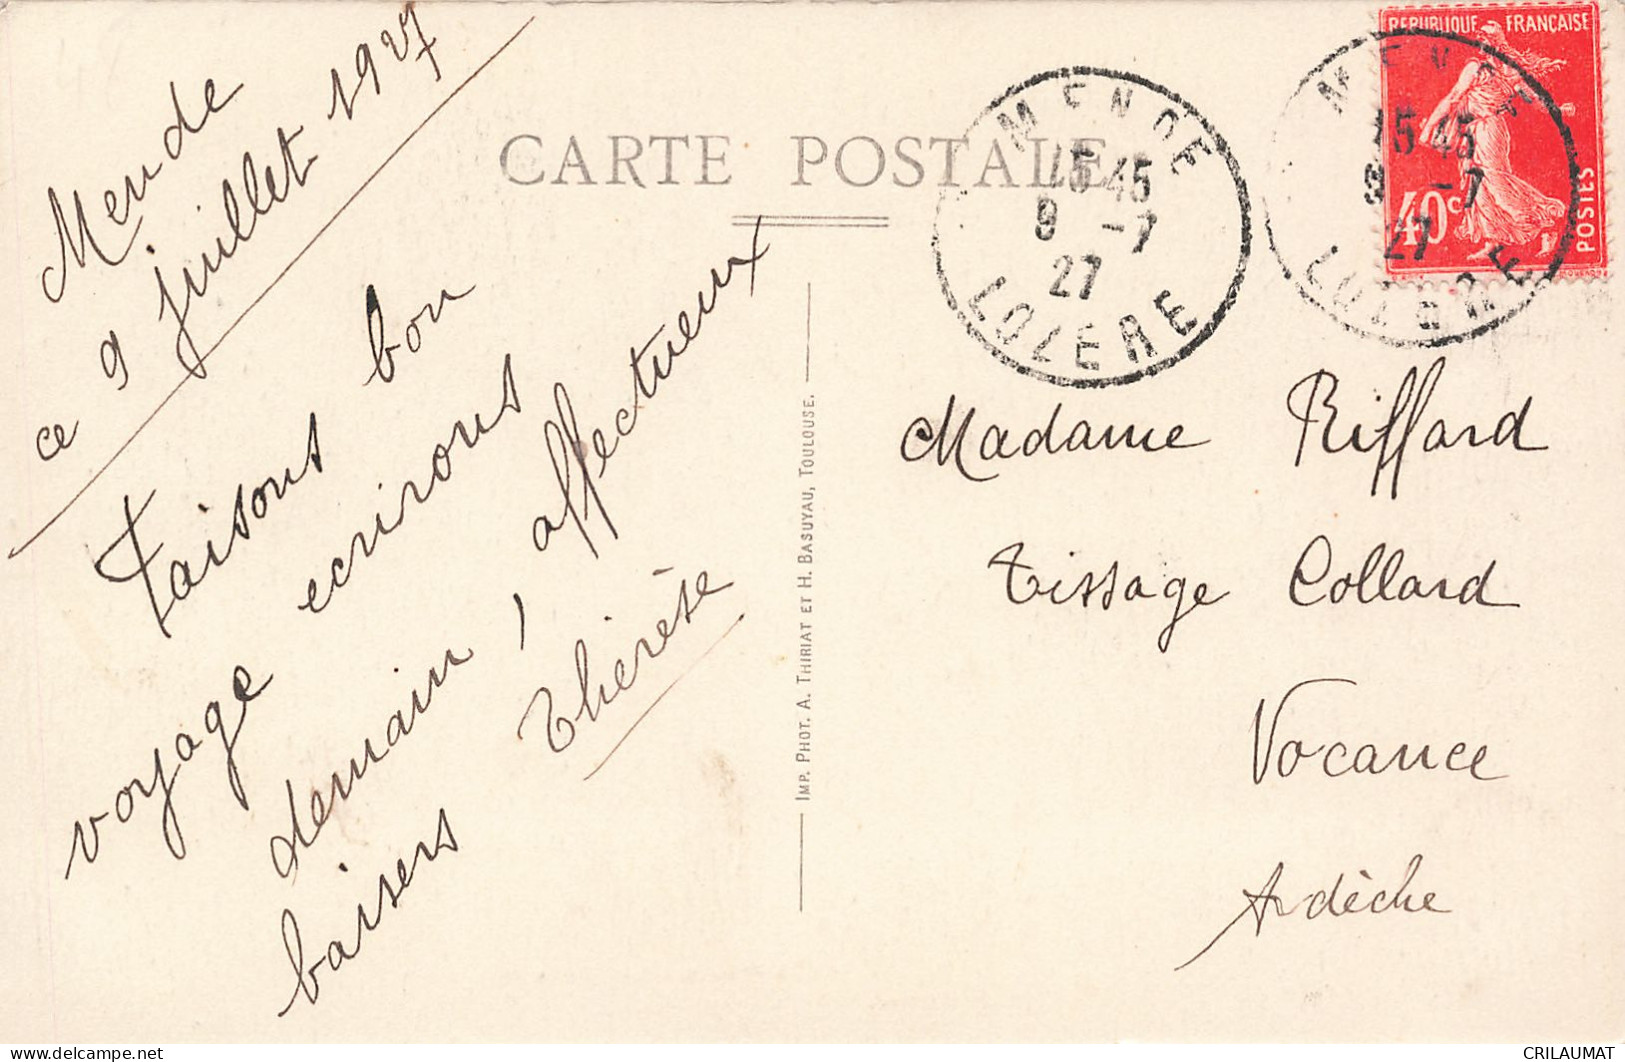 Mende
ce 9 juillet 1927
Faisons bon
voyage ecrirons
demain, affectueux
baisers Thérèse
CARTE POSTALE
IMP. PHOT. A. THIRIAT ET H. BASUYAU, TOULOUSE.
MENDE
15 45
9 -7
27
LOZERE
REPUBLIQUE FRANÇAISE
40c
POSTES
MENDE
15 45
9 -7
27
LOZERE
Madame Riffard
Tissage Collard
Vocance
Ardèche
CRILAUMAT